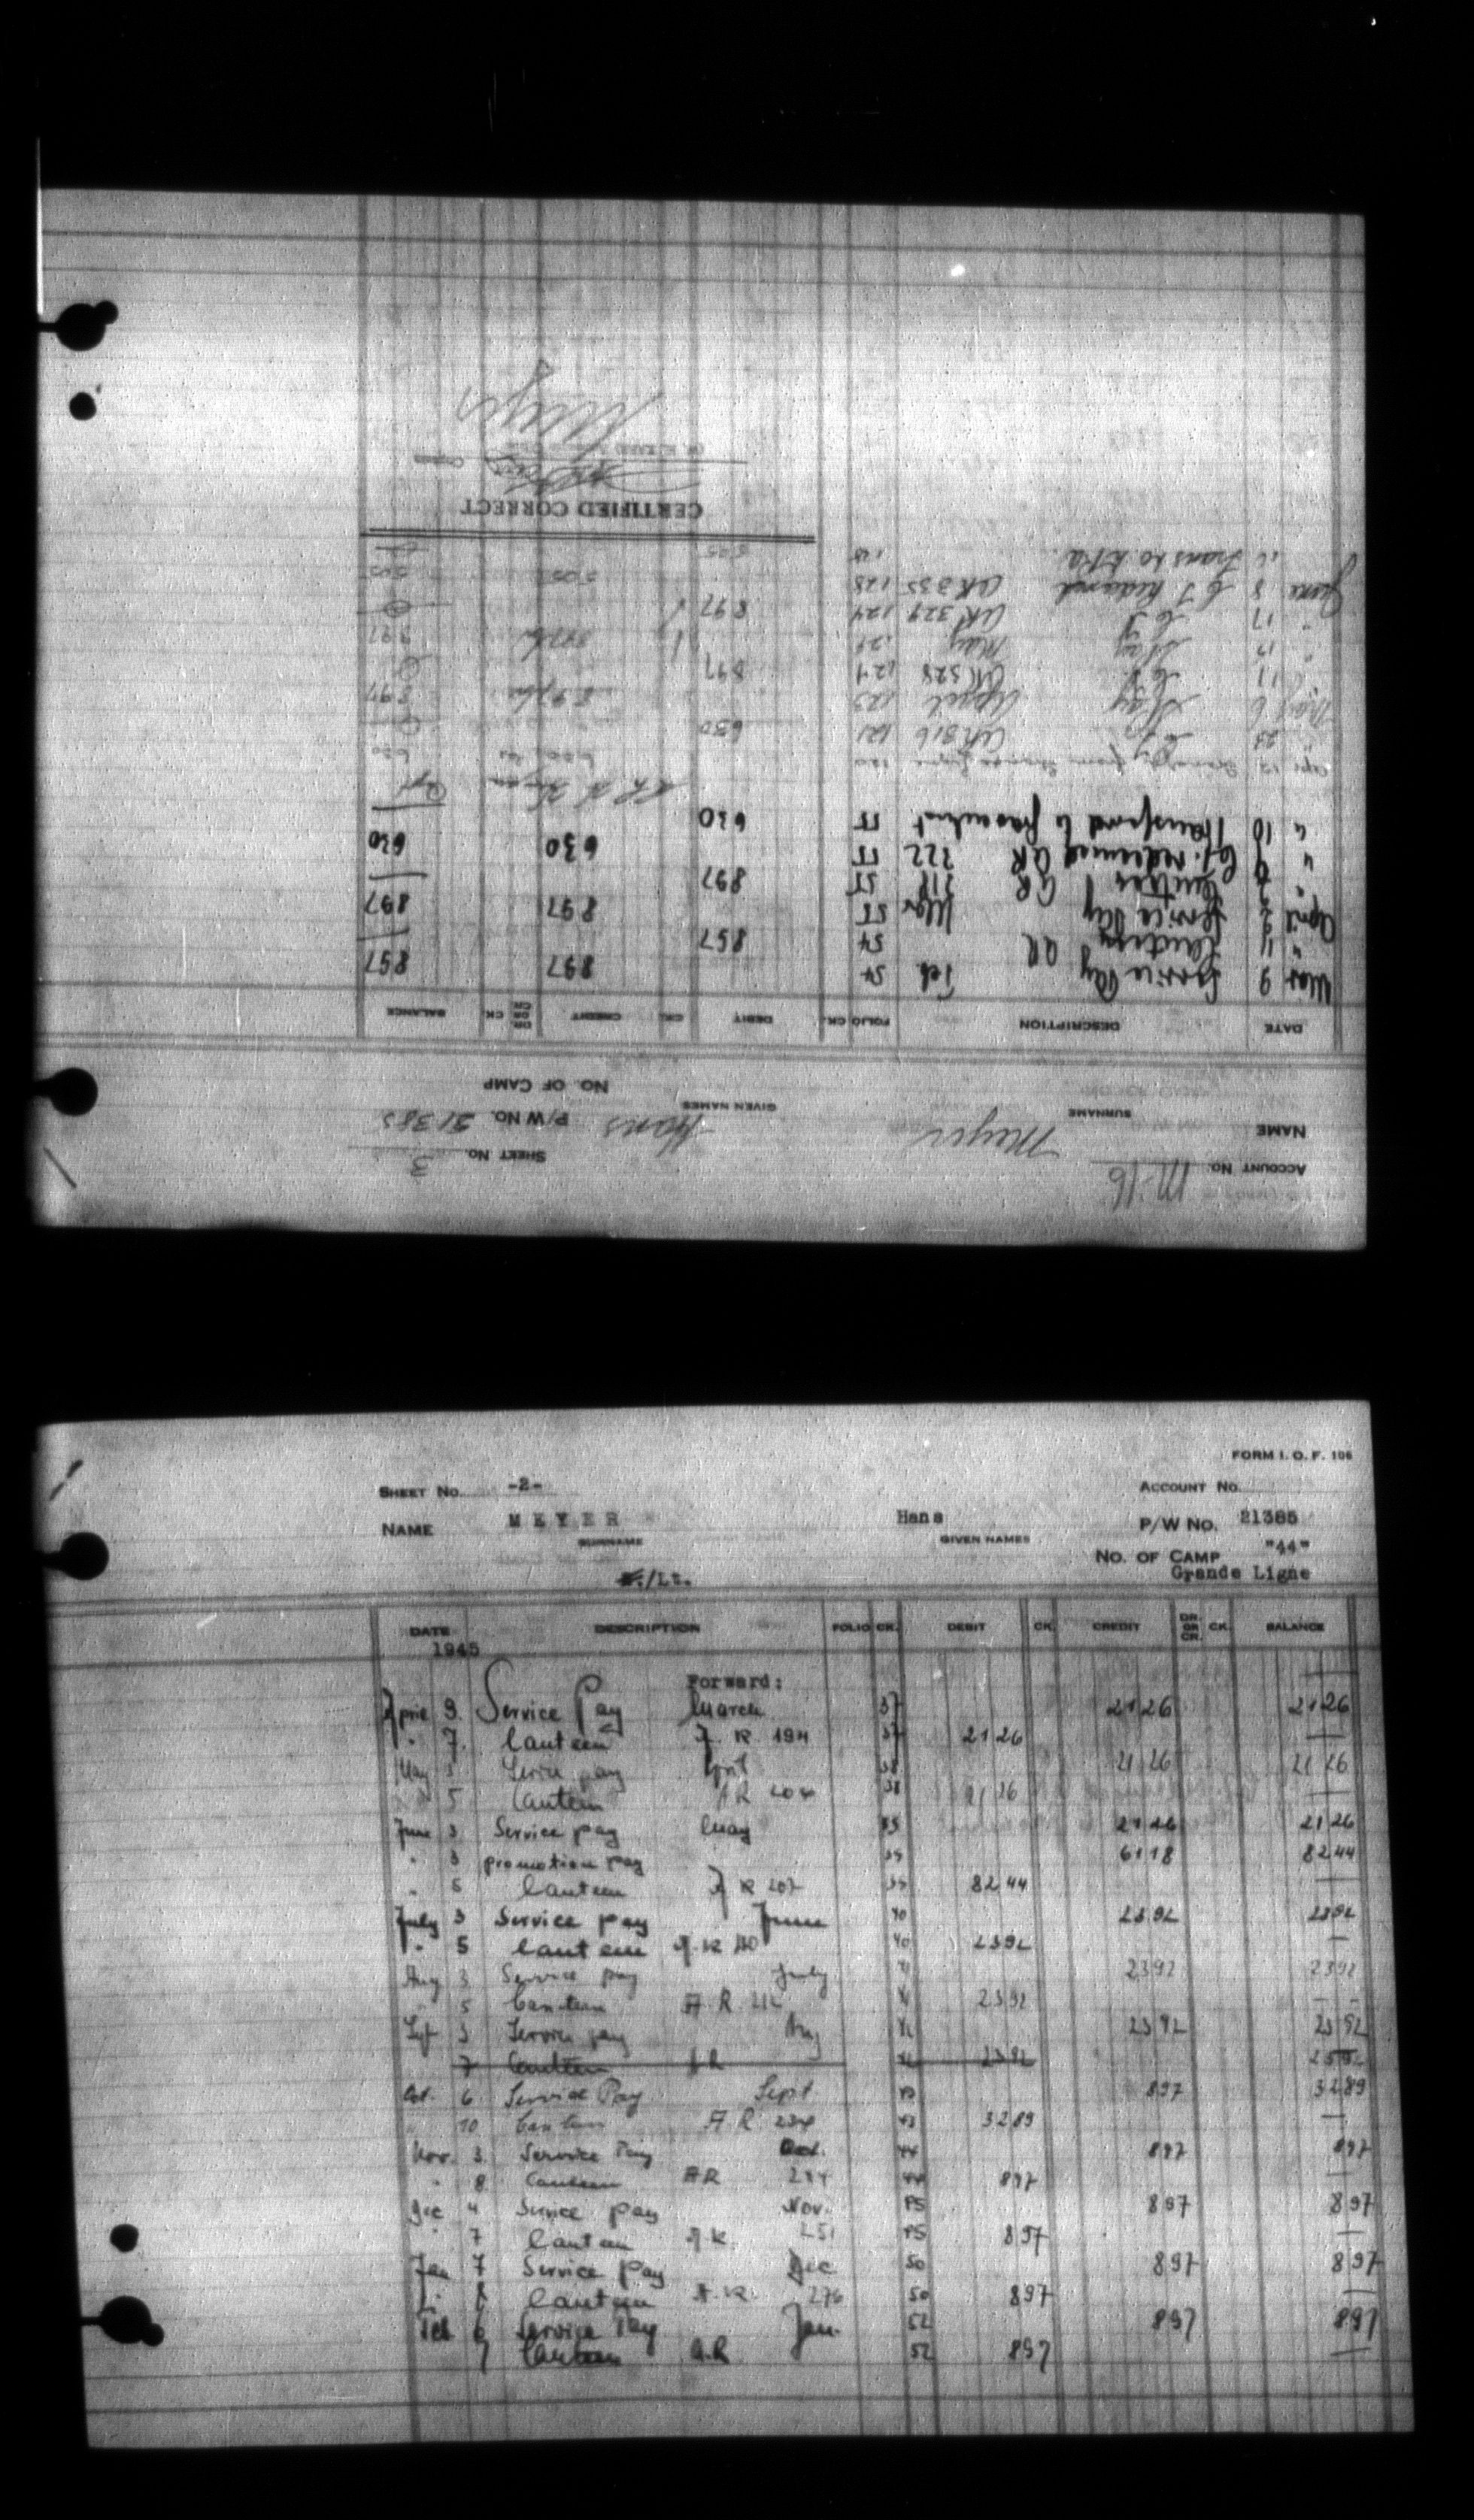 ACCOUNT No. M-16 SHEET No. 3
NAME Meyer Hans P/W No. 21385
SURNAME GIVEN NAMES NO. OF CAMP
DATE DESCRIPTION FOLIO CK. DEBIT CK. CREDIT DR. OR CR. CK. BALANCE
Mar 9 Service Pay Feb 54 897 897
" 11 Canteen AR 54 897
April 2 Service Pay Mar 55 897 897
" Canteen AR 318 55 897
" 9 C.J. redeemed AR 322 55 630 630
" 10 Transferred to 55 630
Apr 12 from Grande Ligne 120 630 630
" 23 AR 316 121 630
May 6 Pay April 123 897 897
" 11 AR 328 124 897
" 17 Pay May 124 897 897
" 17 AR 329 124 897
June 8 C J Redeemed AR 335 128 505 505
Trans to 128 505
CERTIFIED CORRECT
Meyer
FORM I. O. F. 106
SHEET No. -2- ACCOUNT No.
NAME MEYER Hans P/W No. 21385
SURNAME GIVEN NAMES NO. OF CAMP "44"
/Lt. Grande Ligne
DATE DESCRIPTION FOLIO CK. DEBIT CK. CREDIT DR. OR CR. CK. BALANCE
1945
Forward: —
April 3. Service Pay March 37 2126 2126
" 7. Canteen A R 194 37 2126 —
May 3 Service pay April 38 2126 2126
" 5 Canteen AR 204 38 2126 —
June 3 Service pay May 39 2126 2126
" 3 promotion pay 39 6118 8244
" 5 Canteen A R 207 39 8244 —
July 3 Service pay June 40 2392 2392
" 5 Canteen A. R 40 2392 —
Aug 3 Service pay July 41 2392 2392
" 5 Canteen A. R. 41 2392 —
Sept 3 Service pay Aug 42 2392 2392
7 Canteen AR 42 2392 2392
Oct. 6 Service Pay Sept 43 897 3289
" 10 Canteen A. R. 234 43 3289 —
Nov. 3 Service Pay Oct. 44 897 897
" 8 Canteen AR 44 897 —
Dec 4 Service pay Nov. 45 897 897
" 7 Canteen A. R. 251 45 897 —
Jan 7 Service pay Dec 50 897 897
" 8 Canteen A. R. 276 50 897 —
Feb 6 Service Pay Jan. 52 897 897
7 Canteen A.R 52 897 —